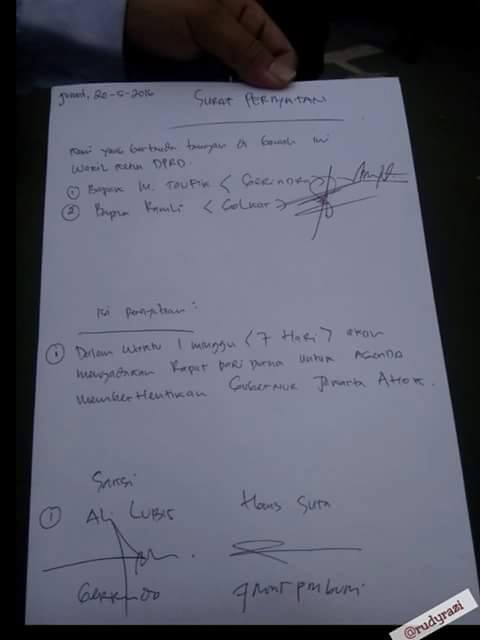 Jumat, 20-5-2016
SURAT PERNYATAAN
Kami yang bertanda tangan di bawah ini
Wakil Ketua DPRD.
① Bapak M. TAUFIK < GERINDRA >
② Bapak Ramli < GOLKAR >
Isi pernyataan :
① Dalam waktu 1 minggu < 7 Hari > akan
mengadakan Rapat pari purna untuk AGENDA
memberhentikan Gubernur Jakarta AHOK.
Saksi
① ALI LUBIS
GERINDO
@rudyrazi